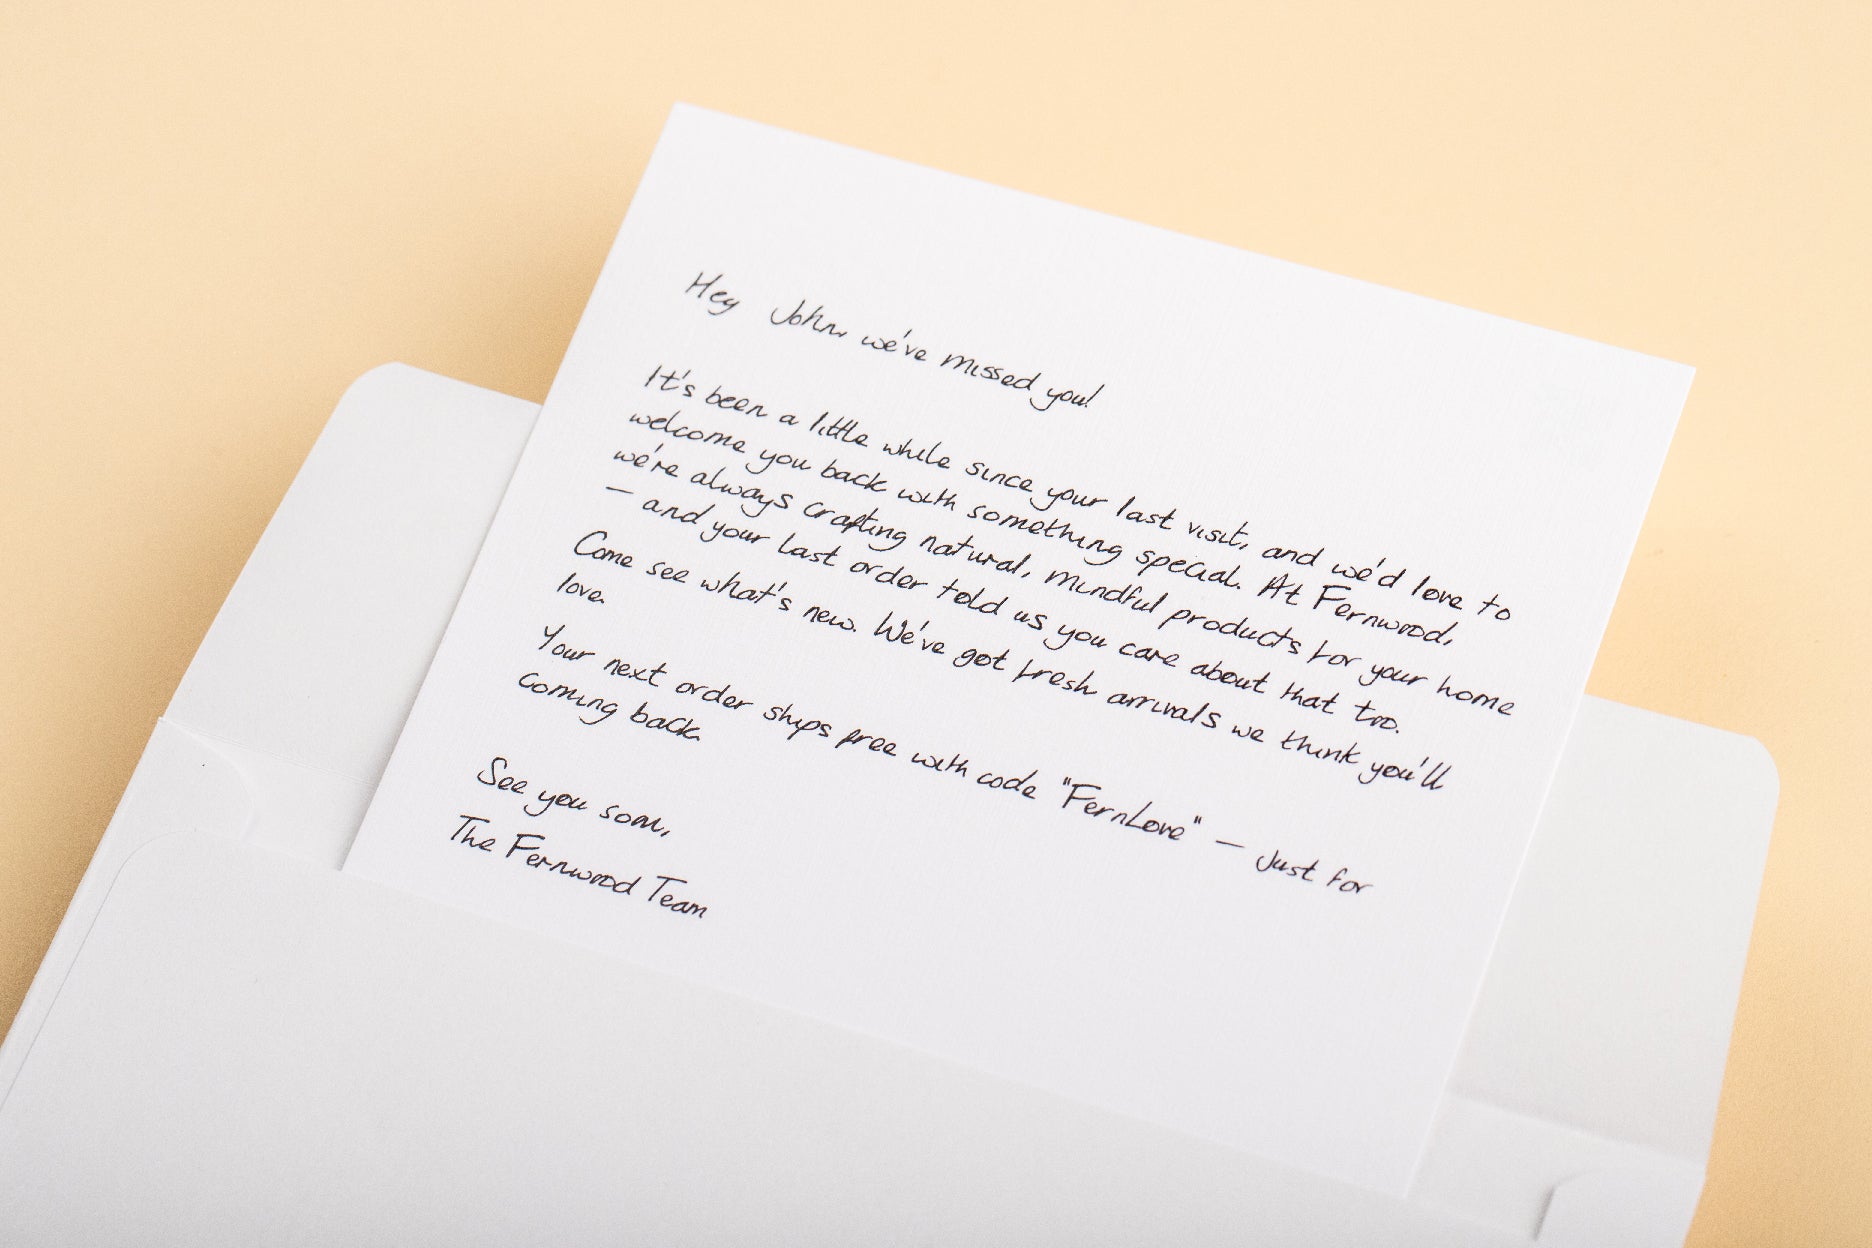 Hey John, we've missed you!
It's been a little while since your last visit, and we'd love to
welcome you back with something special. At Fernwood,
we're always crafting natural, mindful products for your home
— and your last order told us you care about that too.
Come see what's new. We've got fresh arrivals we think you'll
love.
Your next order ships free with code "FernLove" — just for
coming back.
See you soon,
The Fernwood Team